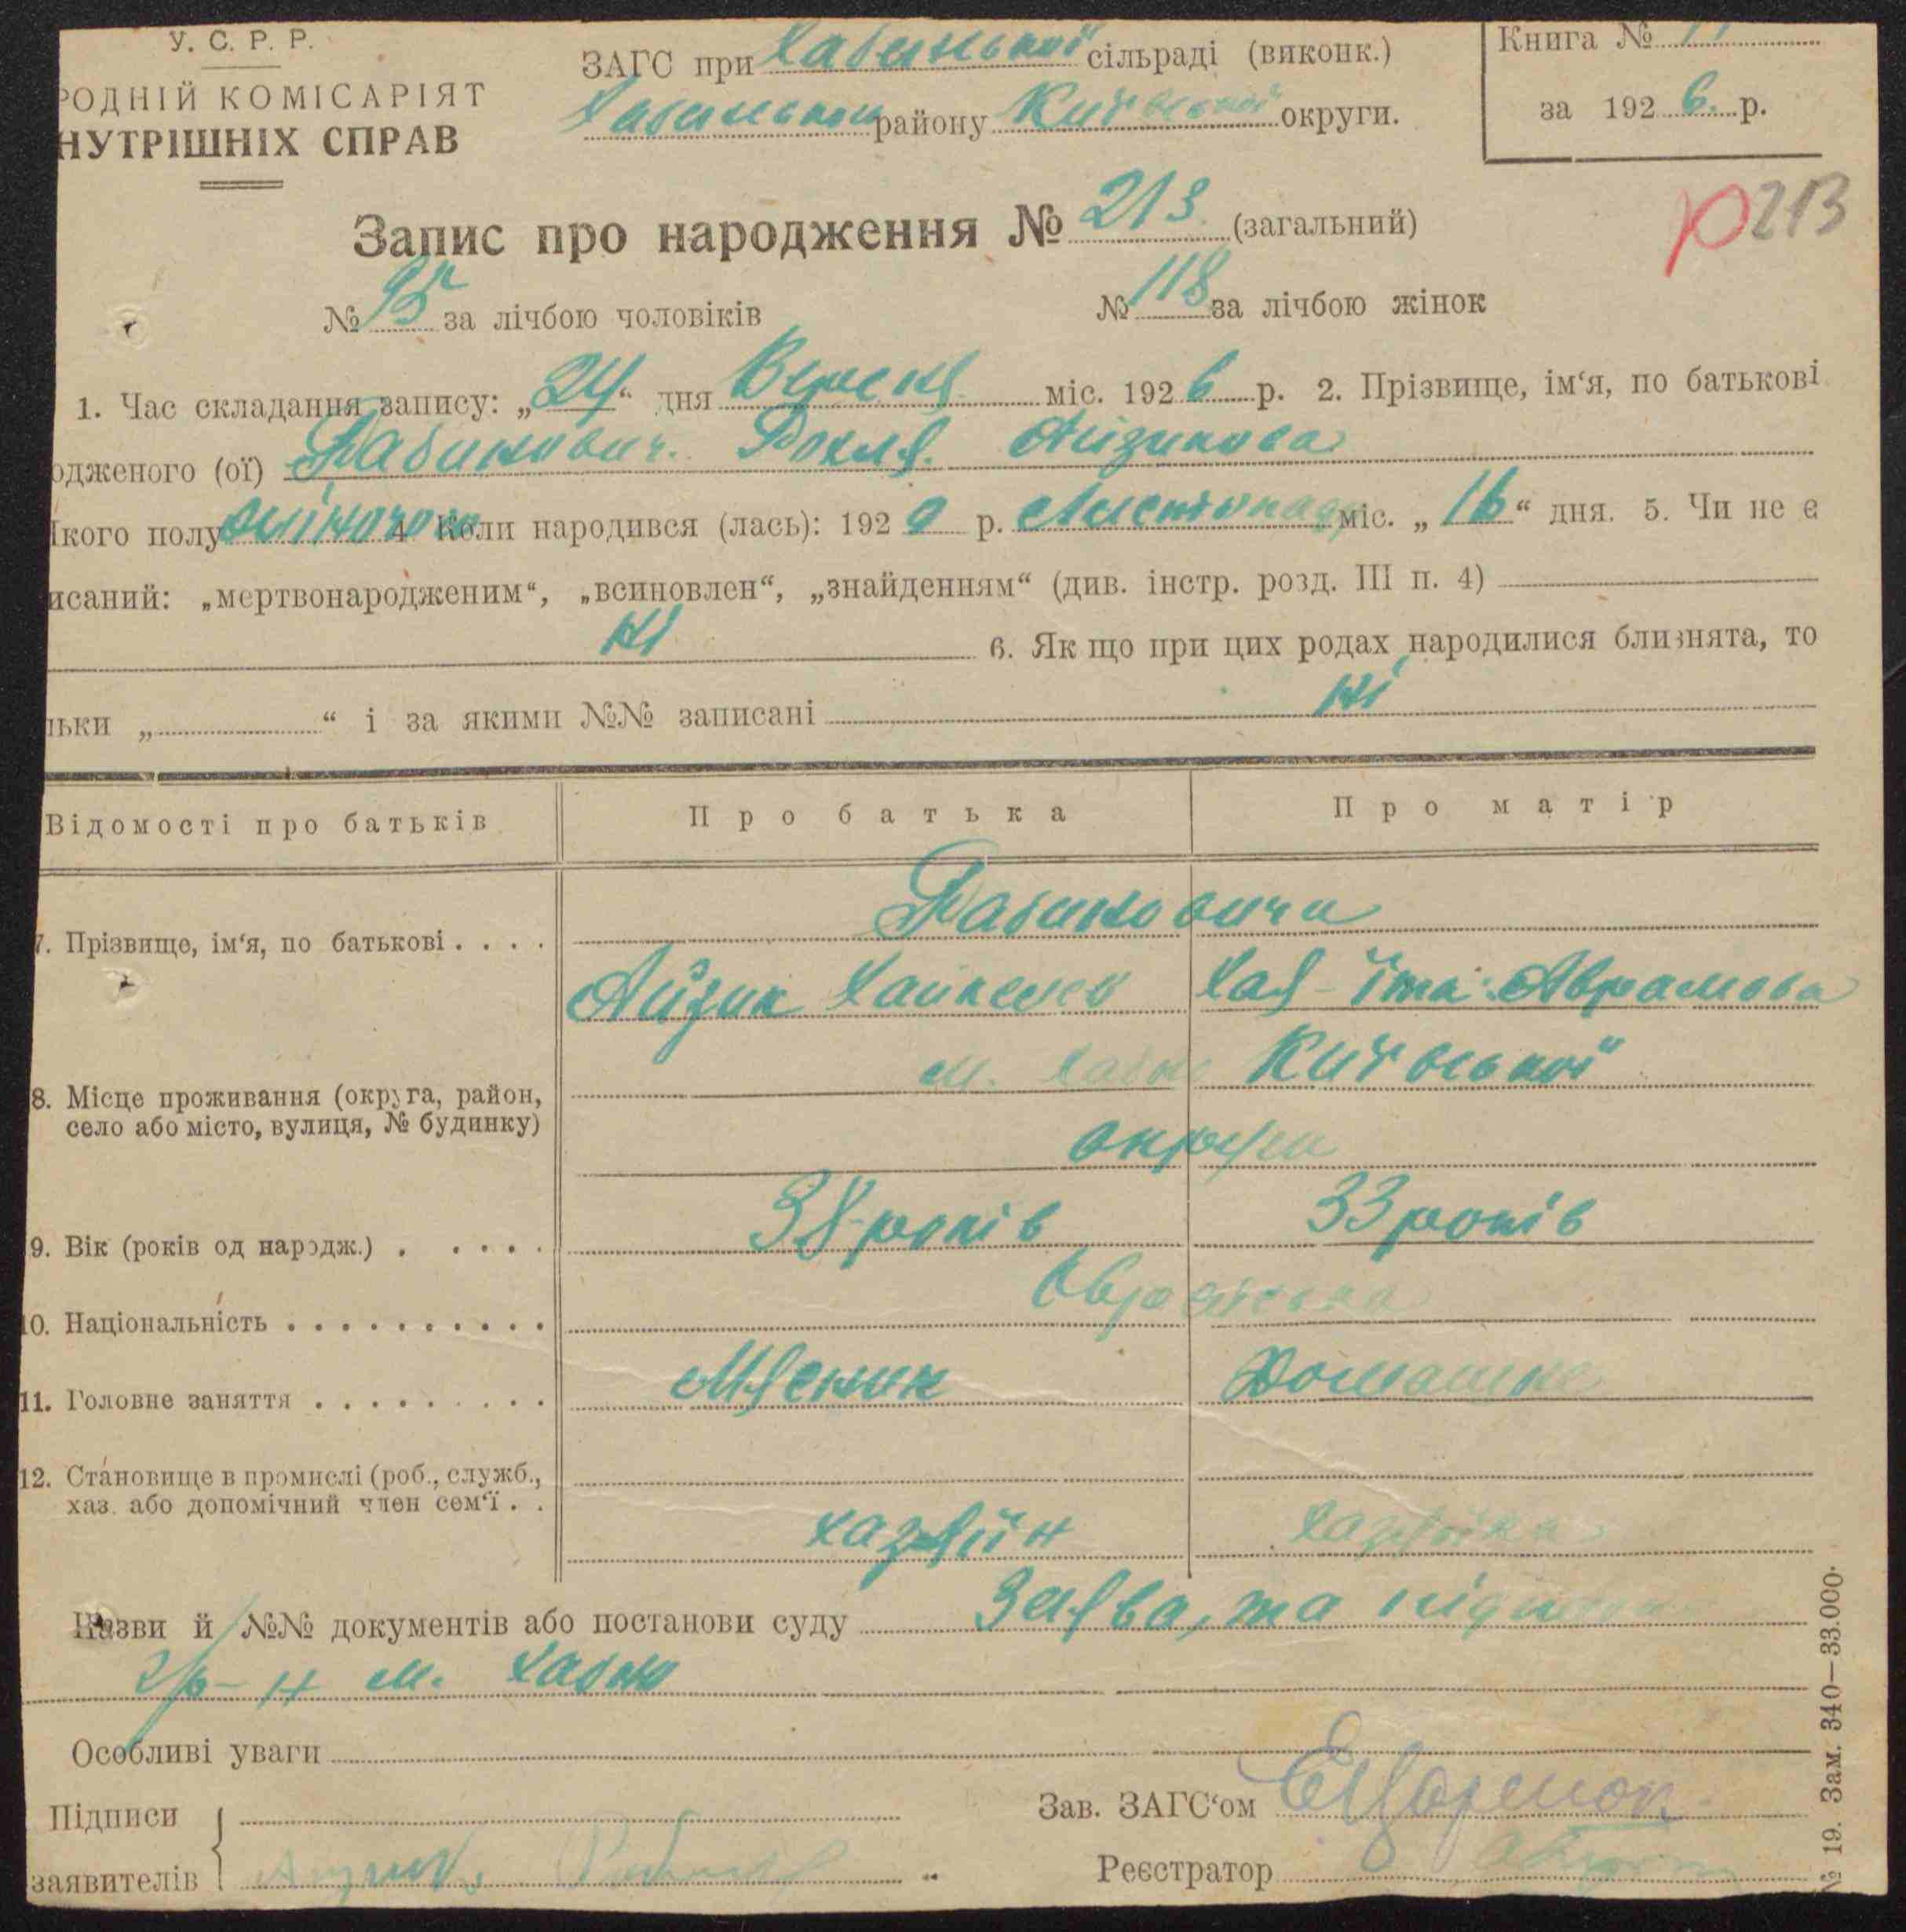 У. С. Р. Р.
РОДНІЙ КОМІСАРІЯТ
НУТРІШНІХ СПРАВ
ЗАГС при Хабенської сільраді (виконк.)
Хабенського району Київської округи.
Книга №
за 1926 р.
Запис про народження № 213 (загальний)
р 213
№ 95 за лічбою чоловіків № 118 за лічбою жінок
1. Час складання запису: „24“ дня Вересня міс. 1926 р. 2. Прізвище, ім‘я, по батькові
одженого (ої) Рабинович Рохля Айзикова
якого полу жіночого 4. Коли народився (лась): 1920 р. Листопада міс. „16“ дня. 5. Чи не є
исаний: „мертвонародженим“, „всиновлен“, „знайденням“ (див. інстр. розд. III п. 4)
ні 6. Як що при цих родах народилися близнята, то
льки „ “ і за якими №№ записані ні
Відомості про батьків Про батька Про матір
7. Прізвище, ім‘я, по батькові . . . . Рабиновичи
Айзик Хайкелев Хая-Іта Аврамова
8. Місце проживання (округа, район, село або місто, вулиця, № будинку) м. Хабно Київської
округи
9. Вік (років од народж.) . . . . . 38 років 33 років
10. Національність . . . . . . . . . . Єврейська
11. Головне заняття . . . . . . . . . Мясник Домашнє
12. Становище в промислі (роб., служб.,
хаз. або допомічний член сем‘ї . . хазяїн хазяйка
Назви й №№ документів або постанови суду Заява, та
м. Хабно
Особливі уваги
Підписи
заявителів
Зав. ЗАГС‘ом
Реєстратор
№ 19. Зам. 340—33.000.